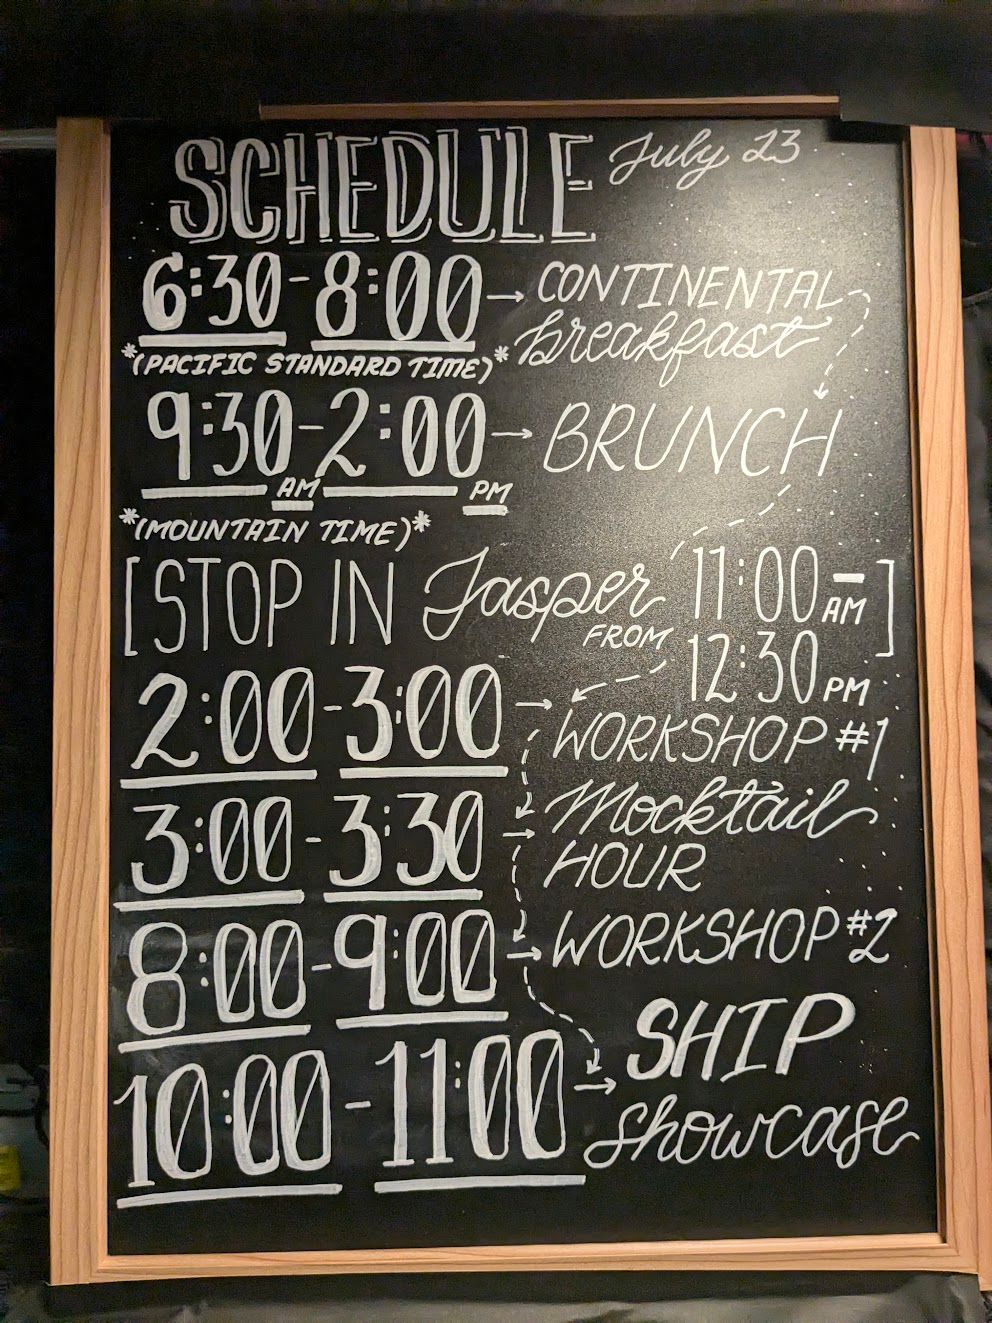 SCHEDULE July 23
6:30-8:00 → CONTINENTAL breakfast
*(PACIFIC STANDARD TIME)*
9:30 AM-2:00 PM → BRUNCH
*(MOUNTAIN TIME)*
[STOP IN Jasper FROM 11:00 AM - 12:30 PM]
2:00-3:00 → WORKSHOP #1
3:00-3:30 → Mocktail HOUR
8:00-9:00 → WORKSHOP #2
10:00-11:00 → SHIP showcase